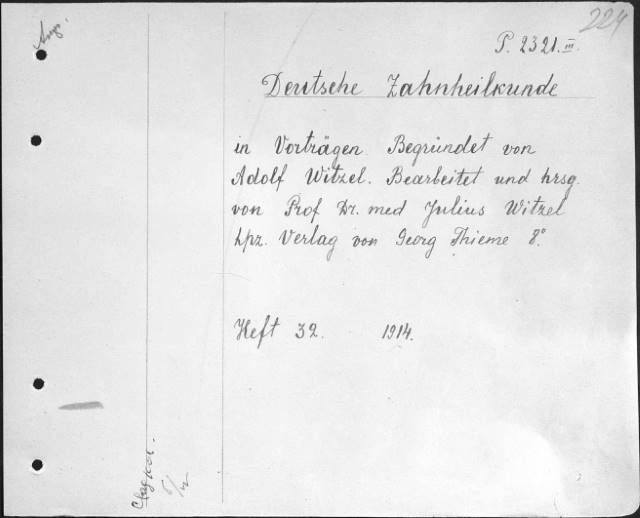 224
P. 2321.III.
Deutsche Zahnheilkunde
in Vorträgen. Begründet von
Adolf Witzel. Bearbeitet und hrsg.
von Prof Dr. med Julius Witzel
Lpz. Verlag von Georg Thieme 8°.
Heft 32. 1914.